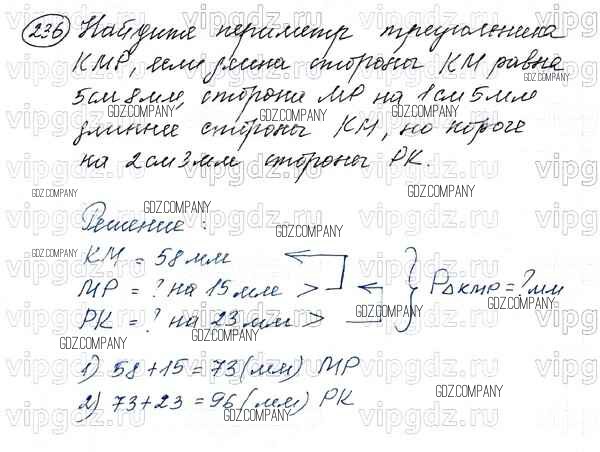 236 Найдите периметр треугольника
КМР, если длина стороны КМ равна
5см 8мм, сторона МР на 1см 5мм
длиннее стороны КМ, но короче
на 2см 3мм стороны РК.
Решение:
КМ = 58мм
МР = ? на 15мм >
РК = ? на 23мм >
P∆КМР = ? мм
1) 58 + 15 = 73 (мм) МР
2) 73 + 23 = 96 (мм) РК
vipgdz.ru
GDZ.COMPANY